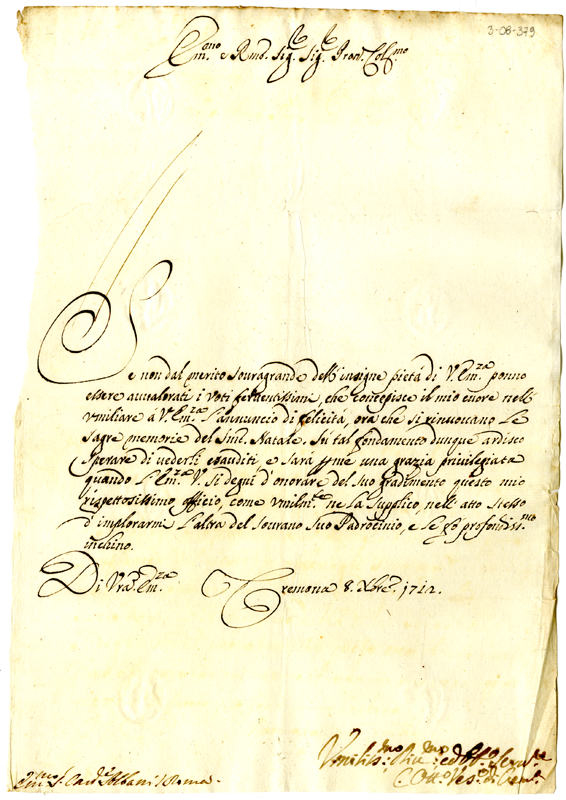 3-08-379
Em.mo e Rmo. Sig.r Sig.r Pron. Col.mo
Se non dal merito souragrande dell'insigne pietà di V. Em.za ponno
essere auualorati i voti feruentissimi, che concepisce il mio cuore nell'
vmiliare à V. Em.za l'annuncio di felicità, ora che si rinuouano le
sagre memorie del Sm̃o. Natale. Sù tal fondamento dunque ardisco
sperare di uederli esauditi e sarà p me una grazia priuilegiata
quando l'Em.za V. si degni d'onorare del suo gradimento questo mio
rispettosissimo officio, come vmilm.te ne la supplico, nell'atto stesso
d'implorarmi l'altra del sourano suo Padrocinio, e le fò profondiss.mo
inchino.
Di Vra. Em.za Cremona 8. Xbre. 1712.
Vmiliss.mo Diu.mo ed Obb.o Seru.re
C. Ott.o Ves.o di Crem.a
Em.mo S. Card.e Albani Roma.